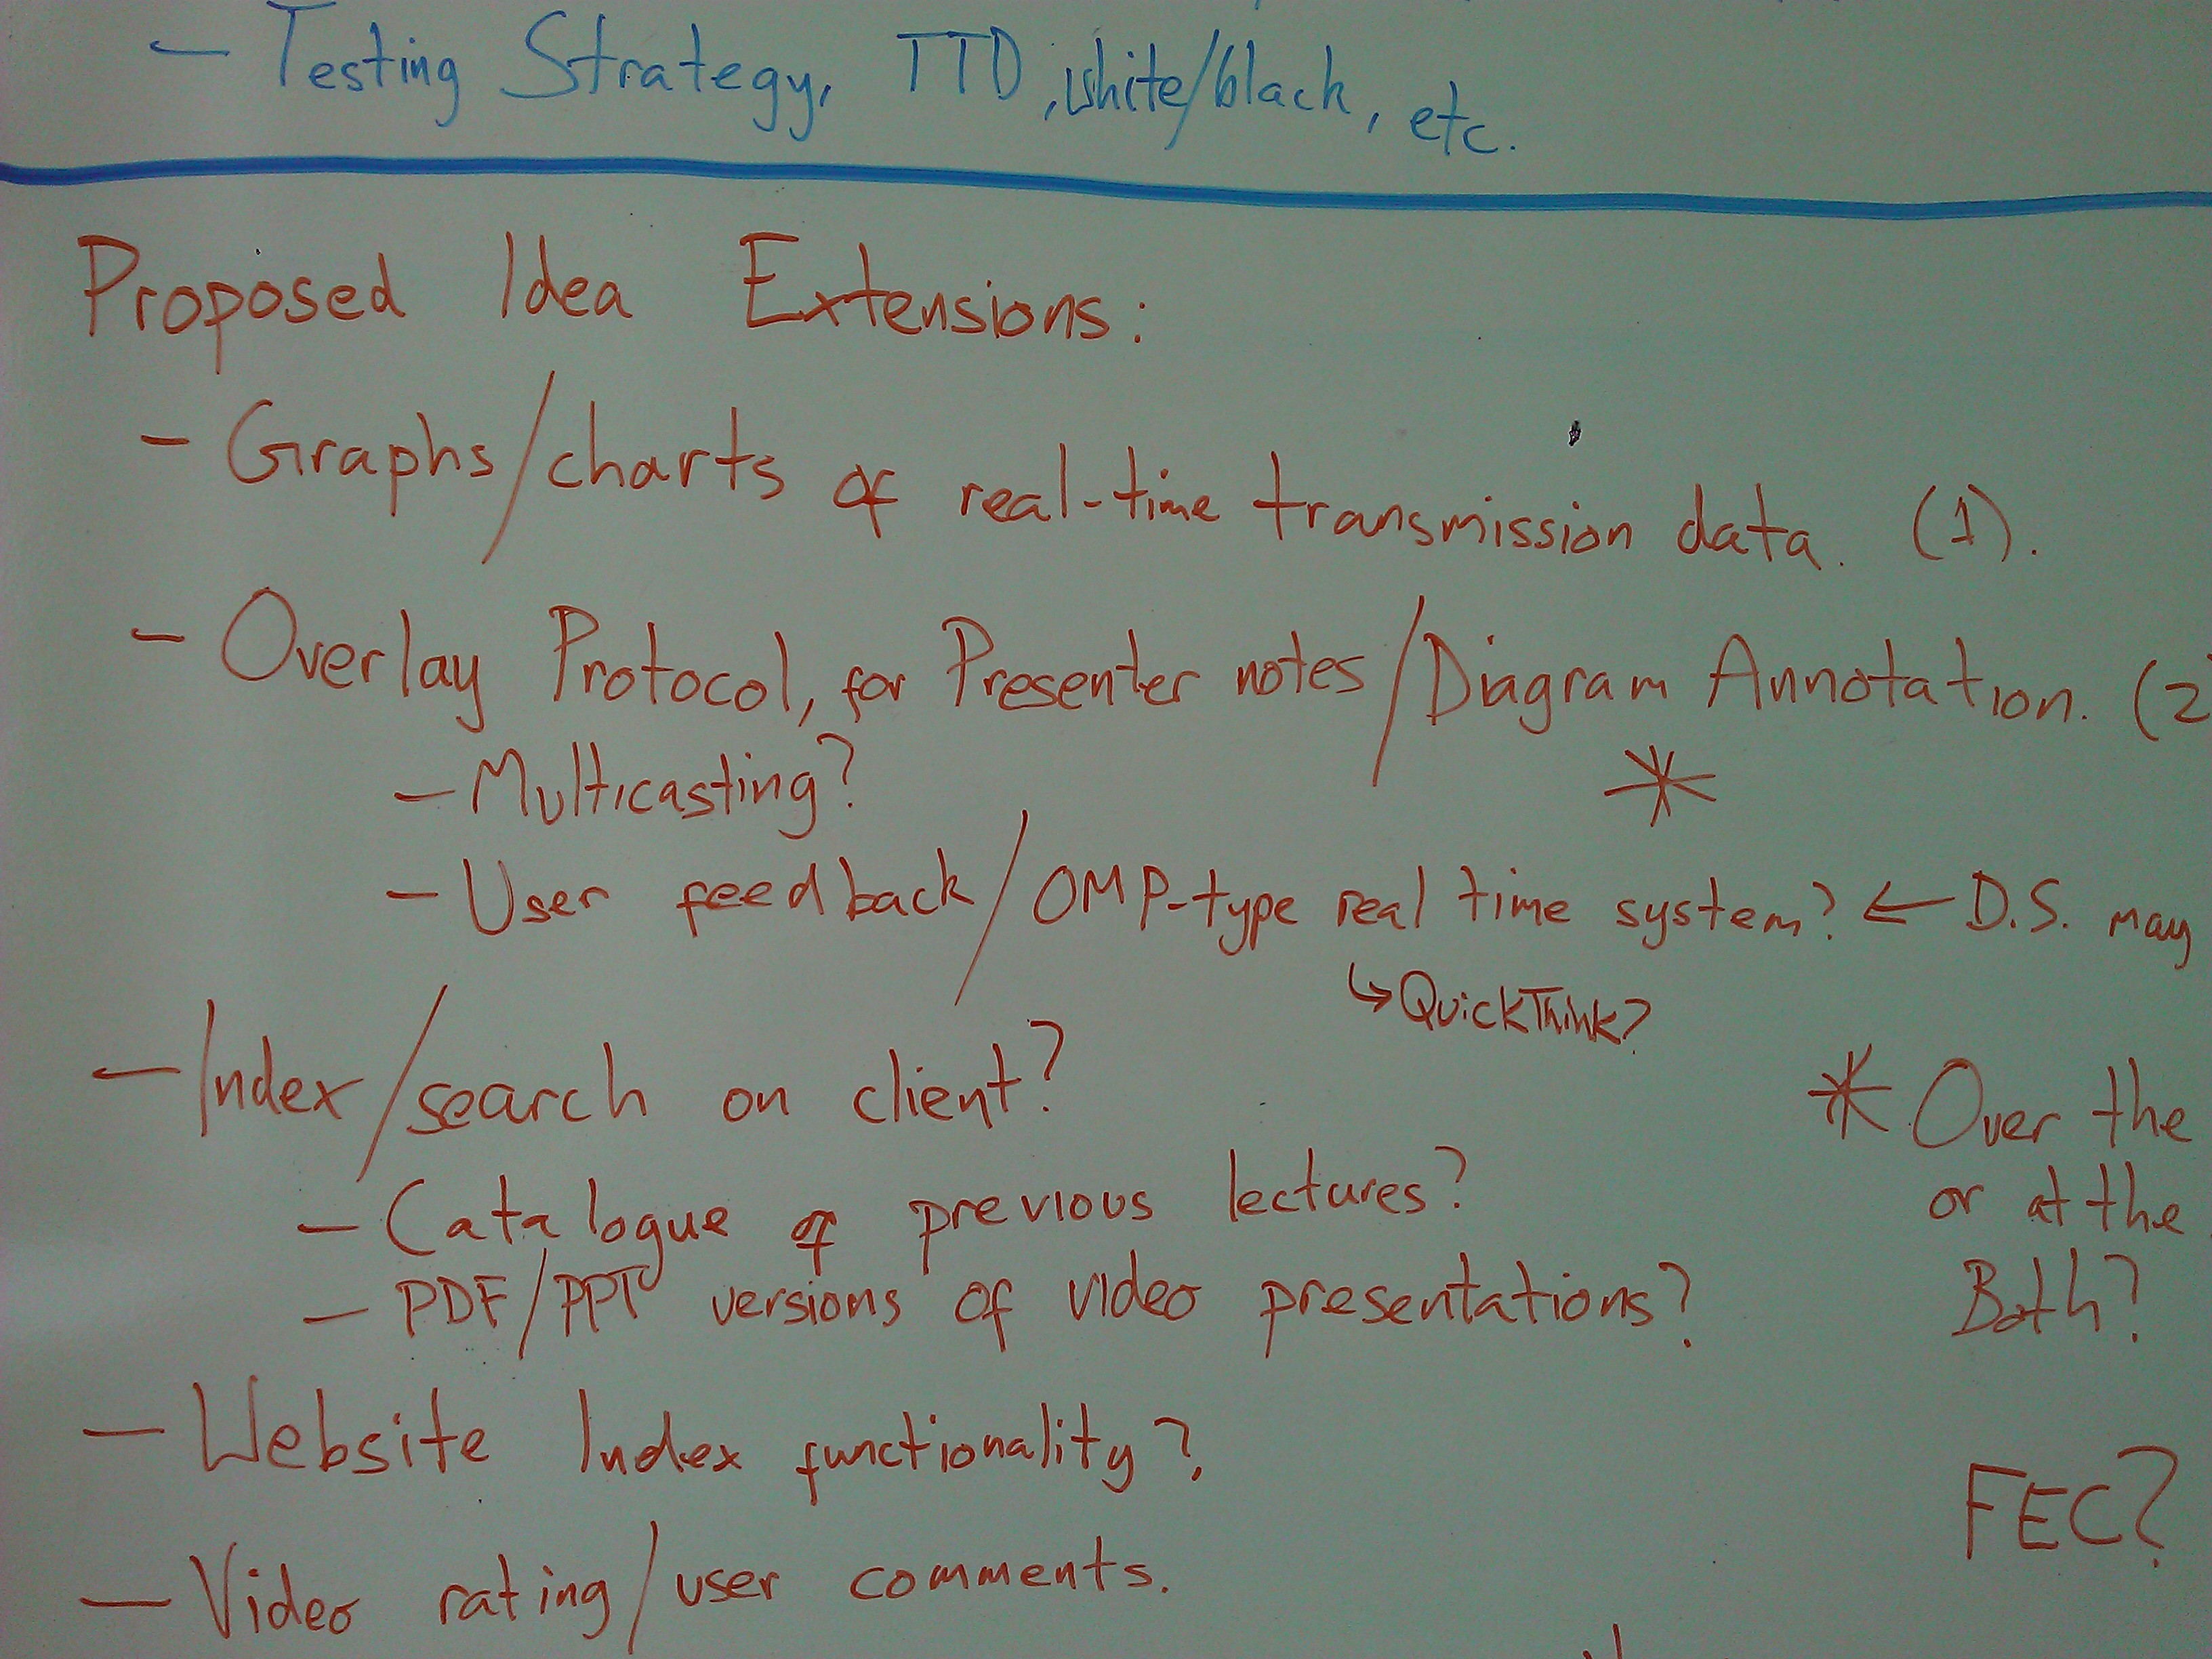 - Testing Strategy, TTD, white/black, etc.
Proposed Idea Extensions:
- Graphs/charts of real-time transmission data. (1).
- Overlay Protocol, for Presenter notes/Diagram Annotation. (2
*
- Multicasting?
- User feedback/OMP-type real time system? ← D.S. may
↳ QuickThink?
- Index/search on client?
* Over the
or at the
Both?
- Catalogue of previous lectures?
- PDF/PPT versions of video presentations?
- Website Index functionality?
FEC?
- Video rating/user comments.